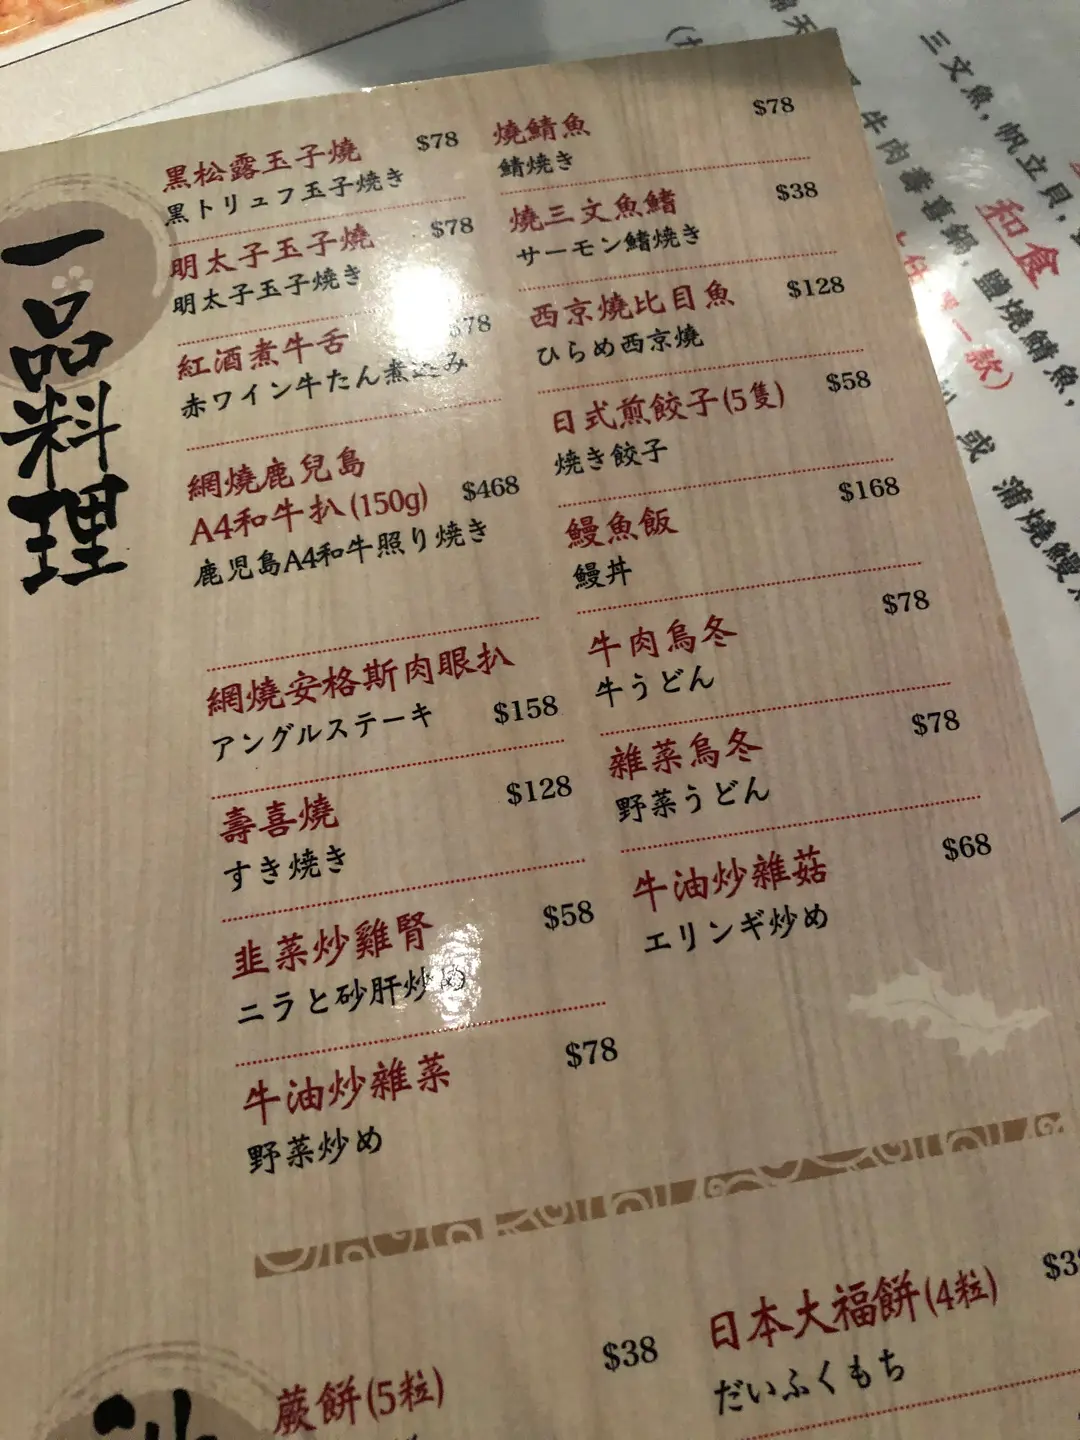 一品料理
黒松露玉子燒 $78
黒トリュフ玉子焼き
明太子玉子燒 $78
明太子玉子焼き
紅酒煮牛舌 $78
赤ワイン牛たん煮込み
網燒鹿兒島
A4和牛扒(150g) $468
鹿児島A4和牛照り焼き
網燒安格斯肉眼扒
アングルステーキ $158
壽喜燒 $128
すき焼き
韭菜炒雞腎 $58
ニラと砂肝炒め
牛油炒雜菜 $78
野菜炒め
燒鯖魚 $78
鯖焼き
燒三文魚鰭 $38
サーモン鰭焼き
西京燒比目魚 $128
ひらめ西京燒
日式煎餃子(5隻) $58
焼き餃子
鰻魚飯 $168
鰻丼
牛肉烏冬 $78
牛うどん
雜菜烏冬 $78
野菜うどん
牛油炒雜菇 $68
エリンギ炒め
蕨餅(5粒) $38
日本大福餅(4粒)
だいふくもち
三文魚,帆立貝,
和食
牛肉壽喜鍋,鹽燒鯖魚,
一款)
或 蒲燒鰻